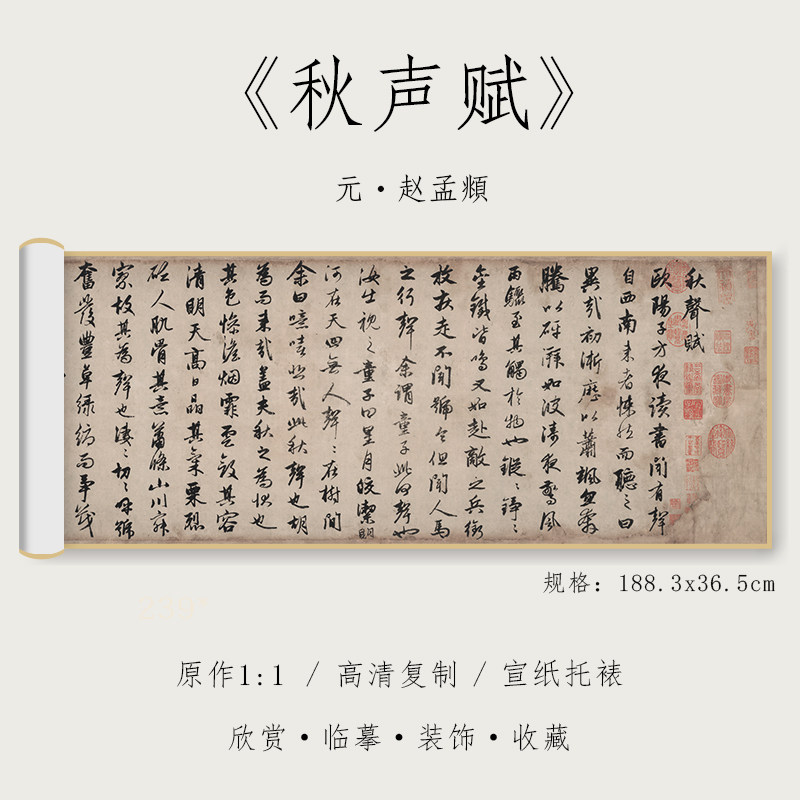 《秋声赋》
元·赵孟頫
秋聲賦
歐陽子方夜读書聞有聲
自西南来者悚然而聽之曰
異哉初淅瀝以蕭颯忽奔
騰以砰湃如波濤夜驚風
雨驟至其觸於物也鏦〻錚〻
金鐵皆鳴又如赴敵之兵銜
枚疾走不聞號令但聞人馬
之行聲余謂童子此何聲也
汝出視之童子曰星月皎潔明
河在天四無人聲〻在樹間
余曰噫嘻悲哉此秋聲也胡
為而来哉盖夫秋之為状也
其色惨澹烟霏雲歛其容
清明天高日晶其氣栗烈
砭人肌骨其意蕭條山川寂
寥故其為聲也凄〻切〻呼號
奮發豐草绿縟而争茂
规格：188.3x36.5cm
原作1:1 / 高清复制 / 宣纸托裱
欣赏·临摹·装饰·收藏